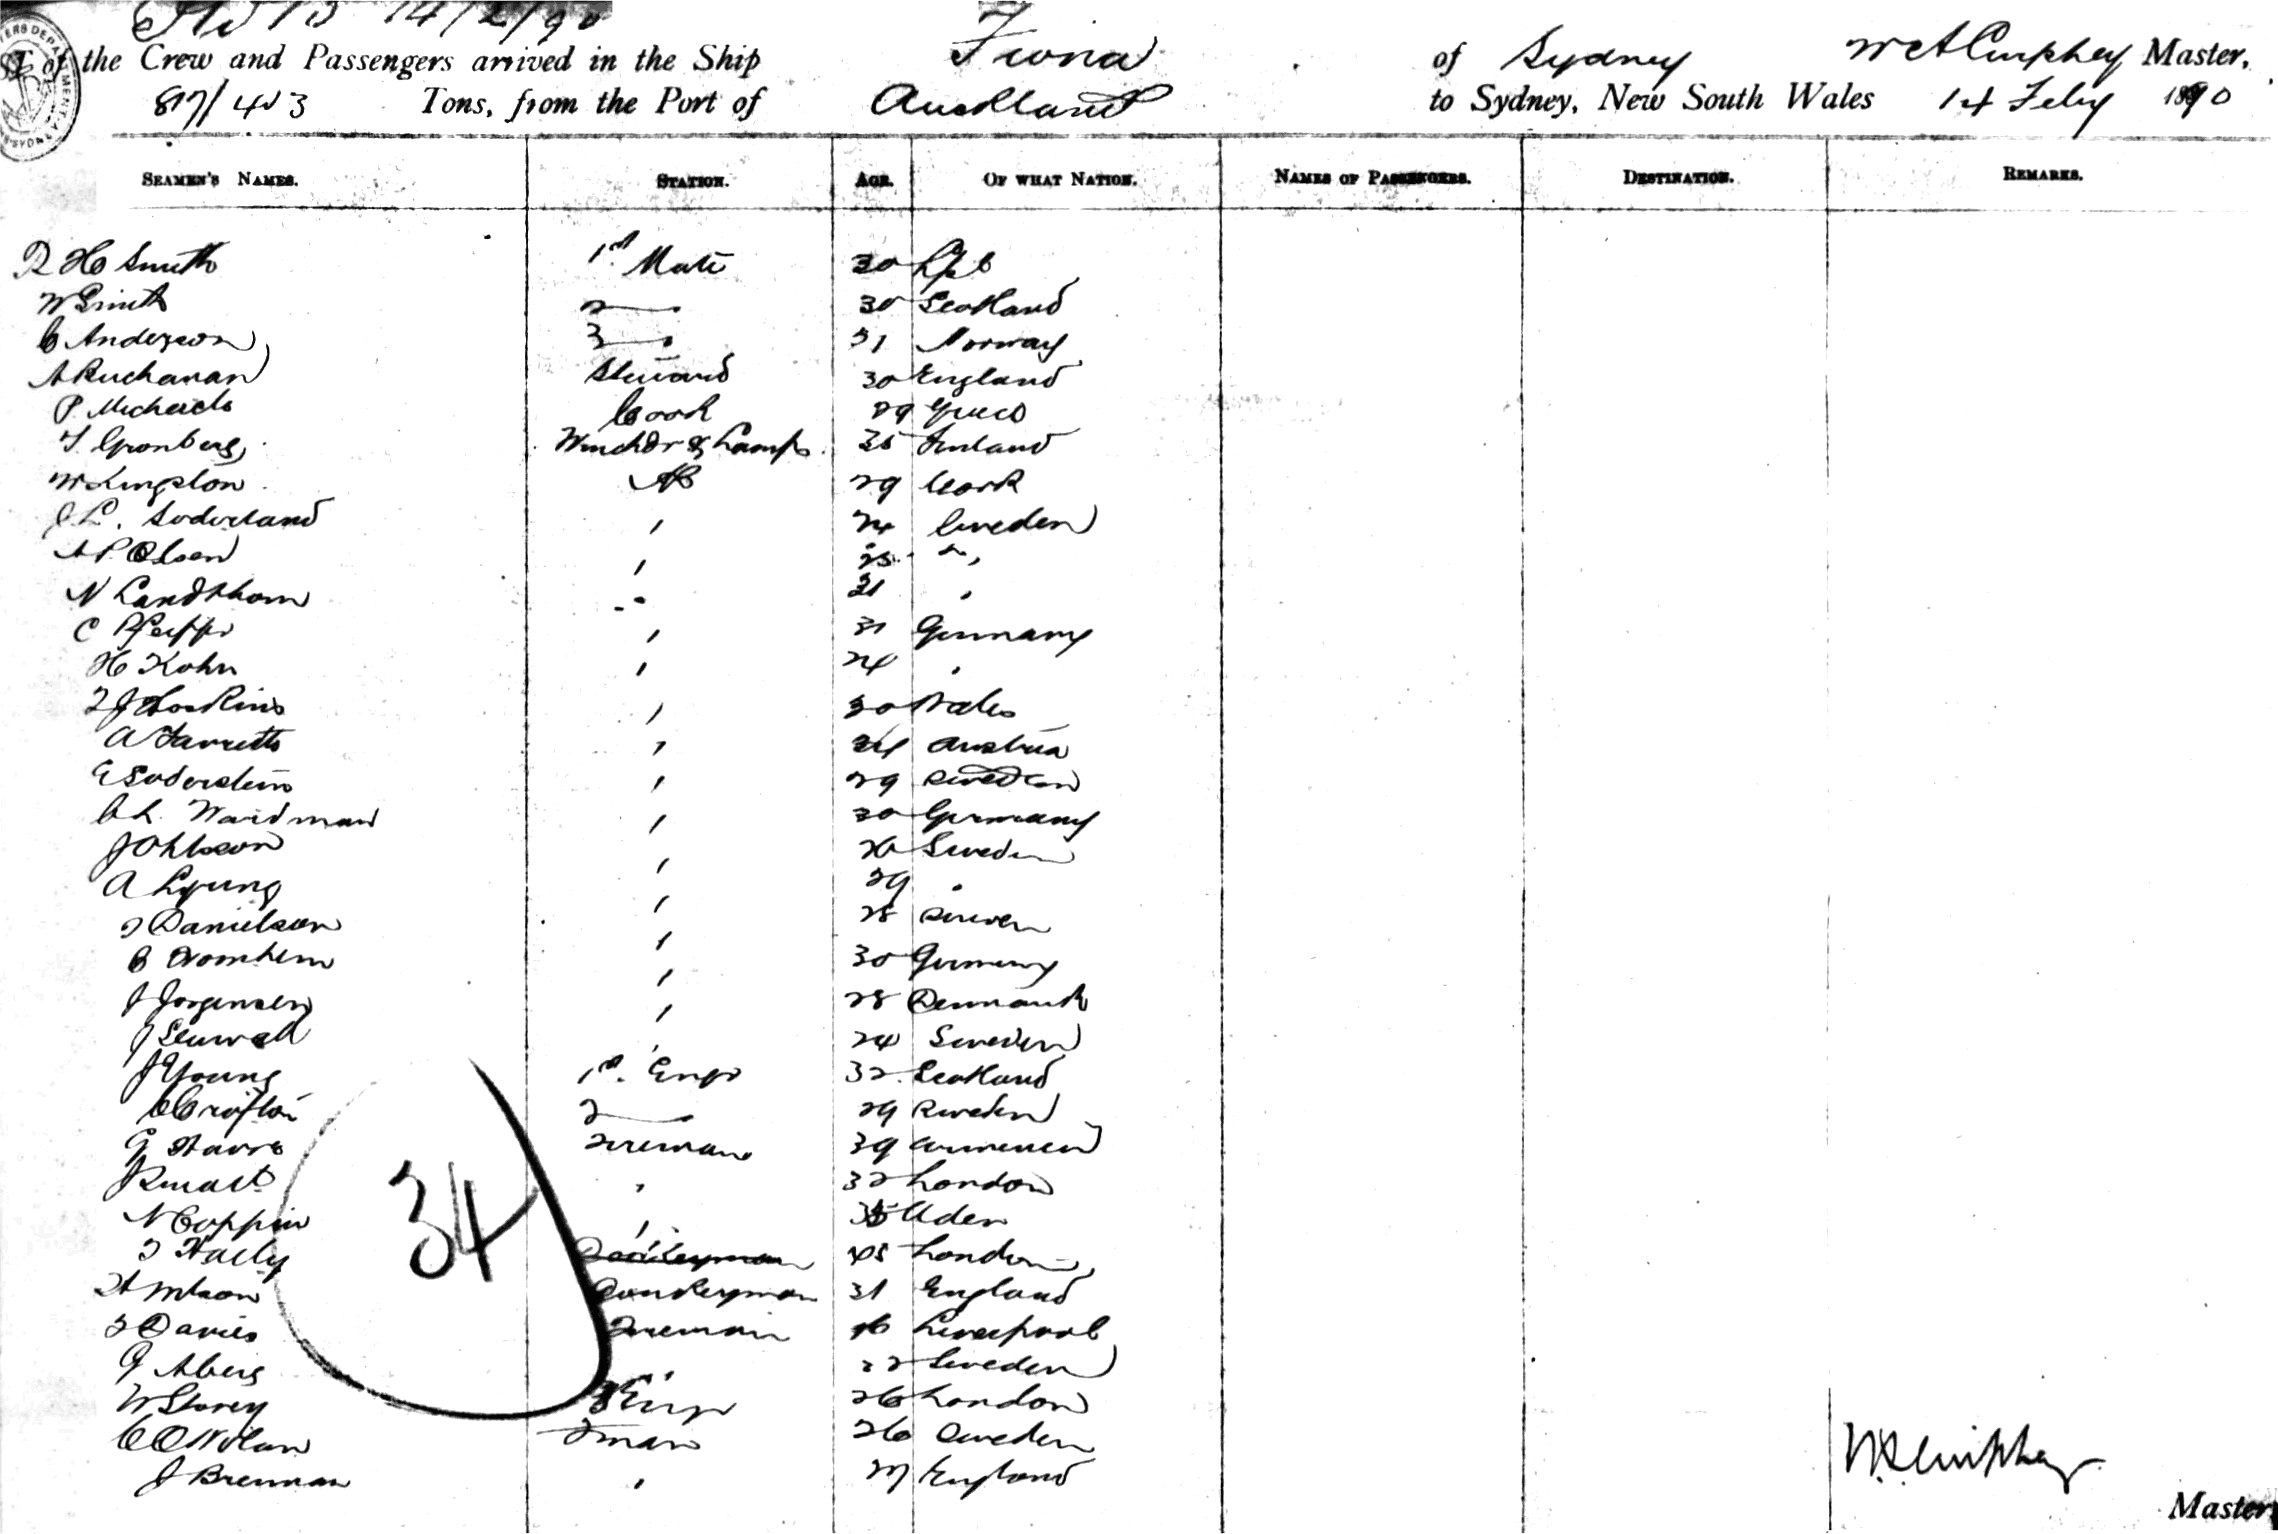 14/2/90
of the Crew and Passengers arrived in the Ship Fiona of Sydney Master,
817/403 Tons, from the Port of Auckland to Sydney, New South Wales 14 Feby 1890
SEAMEN'S NAMES. STATION. AGE. OF WHAT NATION. NAMES OF PASSENGERS. DESTINATION. REMARKS.
R H Smith 1st Mate 30
W Smith 2 — 30 Scotland
C Anderson 3 — 31 Norway
A Buchanan Steward 30 England
P. Michaels Cook 29 Greece
Gronberg Winchdr & Lamps 35 Finland
W Kingston AB 29 Cork
J L. Soderland " 24 Sweden
A P Olsen " 25 "
N Landthom " 31 "
C Pfeiffer " 31 Germany
H Kohn " 24 "
J Hoskins " 30 Wales
A Jarretts " 24 Austria
E Soderstein " 29 Sweden
Ch. Wardman " 30 Germany
J Ohlsson " 26 Sweden
A Lyung " 29 "
J Danielson " 28 Sweden
C " 30 Germany
J Jorgensen " 28 Denmark
J " 24 Sweden
J Young 1st. Engr 32 Scotland
C Crofton 2 — 29 Sweden
G Fireman 39
J " 32 London
N Coppin " 35 Aden
J Haely Donkeyman 45 London
H Donkeyman 31 England
J Davies Fireman Liverpool
G Aberg " 22 Sweden
W Storey 3 Engr 26 London
C O Nolan Fman 26 Sweden
J Brennan " 27 England
34
Master